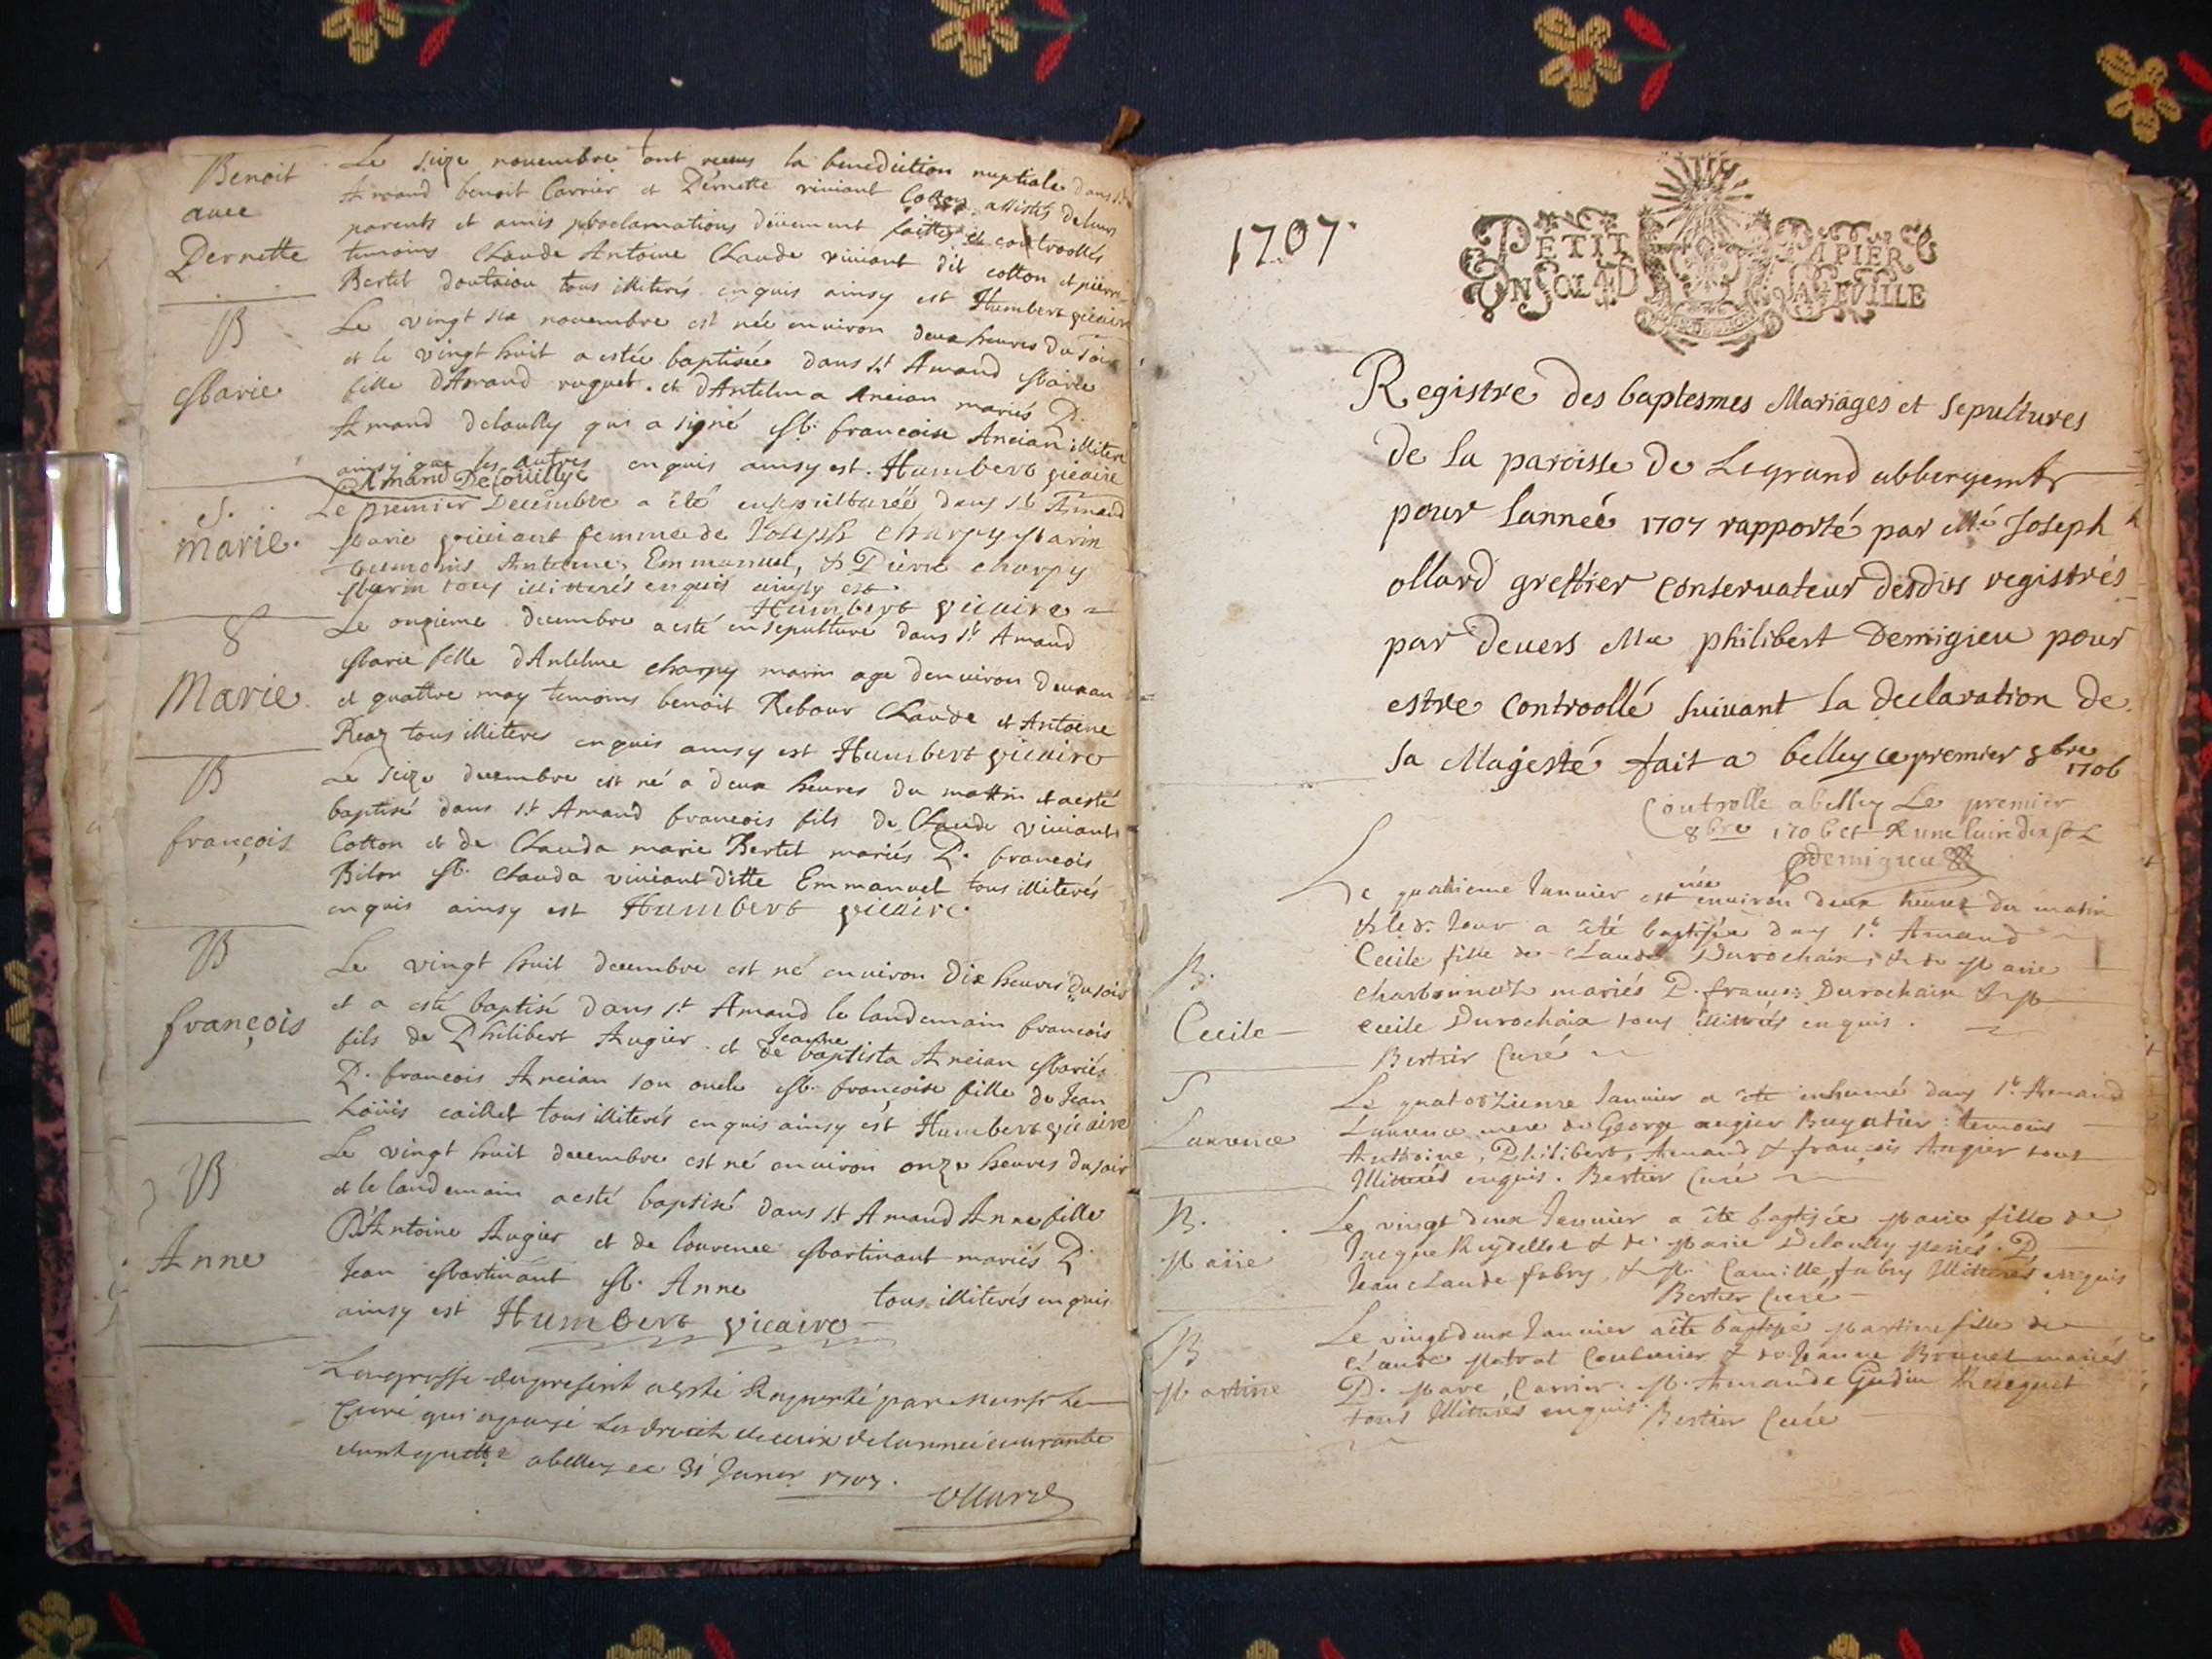 Benoit
avec
Pernette
Le size novembre ont receus la benediction nuptiale dans St
Amand benoit Carrier et Pernette viviant Cotton assistés de leurs
parents et amis proclamations deüement faittes et controollés
temoins Claude Antoine Claude viviant dit cotton et pierre
Bertet tous illiterés enquis ainsy est Humbert vicaire
B
Marie
Le vingt six novembre est née environ deux heures du soir
et le vingt huit a estée baptisée dans St Amand Marie
fille dAmand ruguet et dAntelma Ancian mariés P.
Amand delouilly qui a signé M. francoise Ancian illitere
ainsy que les autres enquis ainsy est. Humbert vicaire
Amand Delouillye
S.
marie.
Le premier Decembre a été ensepulturée dans St Amand
Marie viviant femme de Joseph Charpy Marin
temoins Antoine, Emmanuel, & Pierre Charpy
Marin tous illitterés enquis ainsy est
Humbert vicaire
S
Marie
Le onzieme decembre a esté ensepulturé dans St Amand
Marie fille dAntelme charpy marin age denviron deux an
et quattre moy temoins benoit Rebour Claude et Antoine
Reaz tous illiteres enquis ainsy est Humbert vicaire
B
françois
Le seize decembre est né a deux heures du mattin et a esté
baptisé dans St Amand francois fils de Claude viviant
Cotton et de Clauda marie Bertet mariés P. francois
Bilon M. Clauda viviant ditte Emmanuel tous illiterés
enquis ainsy est Humbert vicaire.
B
françois
Le vingt huit decembre est né environ dix heures du soir
et a esté baptisé dans St Amand le landemain francois
fils de Philibert Augier et de Jeanne baptista Ancian Mariés
P. francois Ancian son oncle M. françoise fille de Jean
Loüis caillet tous illiterés enquis ainsy est Humbert vicaire
B
Anne
Le vingt huit decembre est né environ onze heures du soir
et le landemain a esté baptisé dans St Amand Anne fille
D'Antoine Augier et de lourence Martinant mariés P.
Jean Martinant M. Anne tous illiterés enquis
ainsy est Humbert vicaire
La grosse du present a esté Raporté par Monsr le
Curé qui a payé les droit de ceux de lannée courante
dont quitte a belley ce 31 Janer 1707.
Ollard
1707.
PETIT PAPIER
UN SOL 4 D LA FEVILLE
Registre des baptesmes Mariages et sepultures
de la paroisse de Legrand abbergemt
pour lannée 1707 rapporté par Me Joseph
ollard greffier conservateur desdits registrés
par devers Me philibert Demigieu pour
estre controollé suivant la declaration de
sa Majesté fait a belley ce premier 8bre
1706
Controlle a belley Le premier
8bre 1706
Demigieu
Le quatrieme Janvier est née environ deux heures du matin
& le dr. Jour a été baptisée dans St. Amand
B.
Cecile
Cecile fille de Claude Durochaix, & de Marie
Charbonnet mariés P. francois Durochaix & M
cecile Durochaix tous illitterés enquis.
Bertier Curé
S
Laurence
Le quatorzieme Janvier a été inhumé dans St. Amand
Laurence mere de George augier Bugatier: temoins
Anthoine, Philibert, Amand & francois Augier tous
Illitterés enquis. Bertier Curé
B.
Marie
Le vingt deux Janvier a été baptisée Marie fille de
Jacque Reydellet & de Marie Delouilly Mariés. P.
Jean Claude fabry, & M. Camille fabry Illitterés enquis
Bertier Curé
B
Martine
Le vingt deux Janvier a été baptisée Martine fille de
Claude Matrat Couturier & de Jeanne Brunet mariés
P. Marc Carrier. M. Amande Gudin
tous Illitterés enquis. Bertier Curé